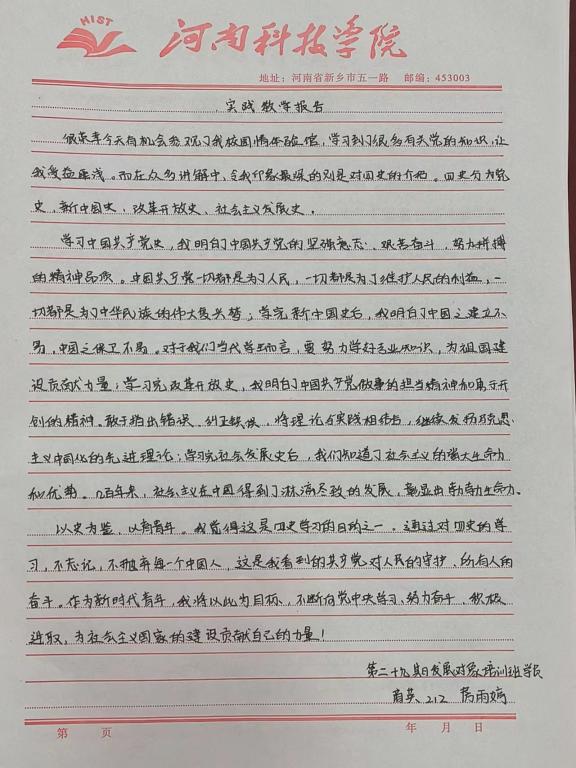 HIST
河南科技学院
地址：河南省新乡市五一路 邮编：453003
实践教学报告
很荣幸今天有机会参观了我校园情体验馆，学习到了很多有关党的知识，让
我受益匪浅。而在众多讲解中，令我印象最深的则是对四史的介绍。四史分为党
史，新中国史、改革开放史、社会主义发展史。
学习中国共产党史，我明白了中国共产党的坚强意志、艰苦奋斗，努力拼搏
的精神品质。中国共产党一切都是为了人民，一切都是为了维护人民的利益，一
切都是为了中华民族的伟大复兴；学完新中国史后，我明白了中国之建立不
易，中国之保卫不易。对于我们当代学生而言，要努力学好专业知识，为祖国建
设贡献力量；学习完改革开放史，我明白了中国共产党做事的担当精神和勇于开
创的精神。敢于指出错误、纠正错误，将理论与实践相结合，继续发扬马克思
主义中国化的先进理论；学习完社会发展史后，我们知道了社会主义的强大生命力
和优势。几百年来，社会主义在中国得到了淋漓尽致的发展，彰显出勃勃生命力。
以史为鉴，以育青年。我觉得这是四史学习的目的之一。通过对四史的学
习，不忘记，不抛弃每一个中国人，这是我看到的共产党对人民的守护、所有人的
奋斗。作为新时代青年，我将以此为目标，不断向党中央学习、努力奋斗、积极
进取，为社会主义国家的建设贡献自己的力量！
第二十九期发展对象培训班学员
商英212 雨嫡
第 页 年 月 日